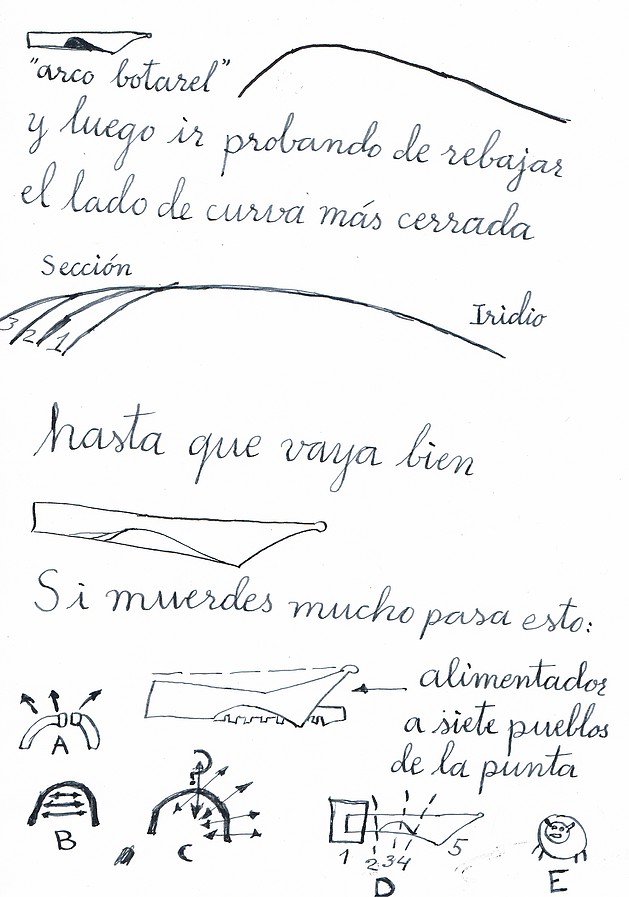 "arco botarel"
y luego ir probando de rebajar
el lado de curva más cerrada
Sección
Iridio
3 2 1
hasta que vaya bien
Si muerdes mucho pasa esto:
alimentador
a siete pueblos
de la punta
A
B
C
1 2 3 4 5
D
E